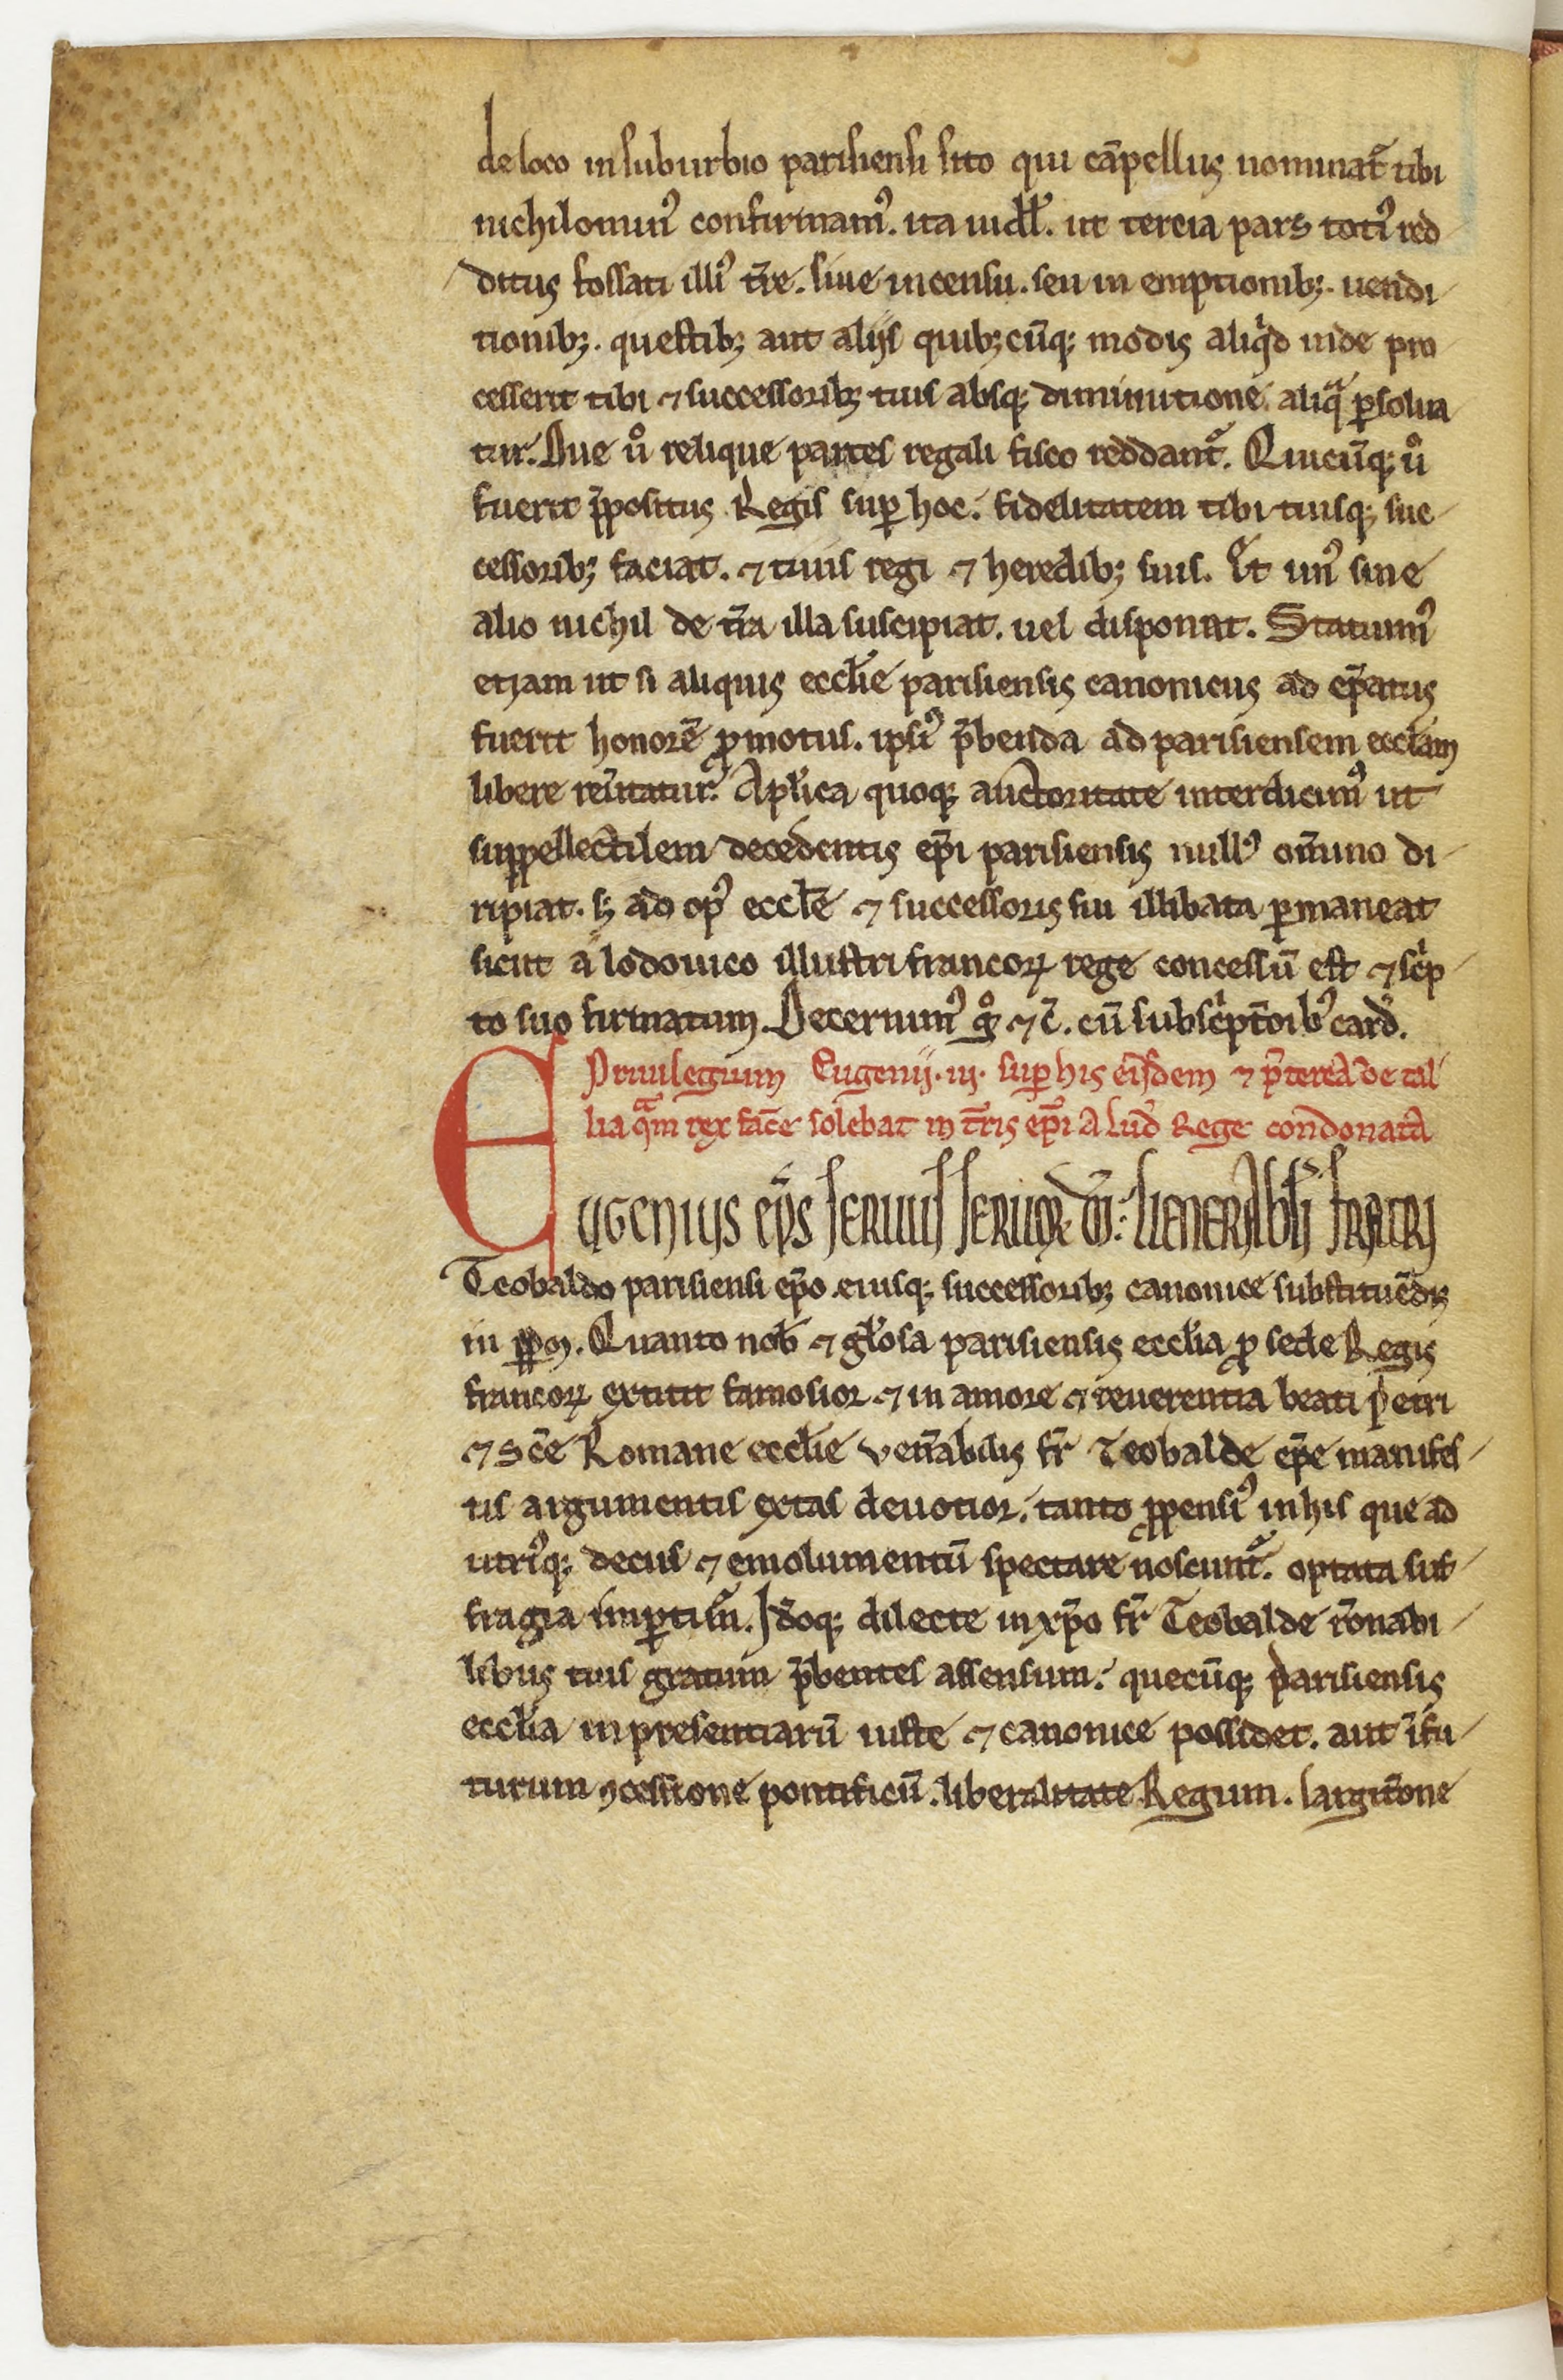 de loco in suburbio parisiensi sito qui cāpellus nominat᷑ tibi
nichilominꝰ confirmamꝰ. ita uidl̃. ut tercia pars totiꝰ red
ditus fossati illiꝰ tr̃e. siue incensu. seu in emptionibꝫ. uendi
tionibꝫ. questibꝫ aut alijs quibꝫcūqꝫ modis aliqͥd inde pro
cesserit tibi ⁊ successoribꝫ tuis absqꝫ diminutione. aliqͣ ꝑsolua
tur. Due uͦ relique partes regali fisco reddant᷑. Quicūqꝫ uͦ
fuerit p̄positus Regis suꝑ hoc. fidelitatem tibi tuisqꝫ suc
cessoribꝫ faciat. ⁊ tuus regi ⁊ heredibꝫ suis. Et unꝰ sine
alio nichil de tr̃a illa suscipiat. uel disponat. Statuimꝰ
etjam ut si aliquis eccl̃ie parisiensis canonicus ad ep̃atus
fuerit honorē ꝓmotus. ipsiꝰ p̄benda ad parisiensem eccl̃iam
libere reũtatur. Apl̃ica quoqꝫ auctoritate interdicimꝰ ut
suppellectilem decedentis ep̃i parisiensis nullꝰ om̃ino di
ripiat. sꝫ ad opꝰ eccl̃e ⁊ successoris sui illibata ꝑmaneat
sicut a lodouico illustri francoꝝ rege concessū est ⁊ scͥp
to suo firmatum. Decernimꝰ gͦ ⁊ c̃. cū subscͥptoĩbꝰ card̃.
Priuilegium Eugenij. iij. suꝑ his eisdem ⁊ p̄terea de tal
lia qͣm rex fac̃e solebat in tr̃is ep̃i A Lud̃ Rege condonata
Eugenius ep̃s seruus seruoꝝ dĩ. uenerabĩli fratri
Teobaldo parisiensi ep̃o. eiusqꝫ successoribꝫ canonice substituēdis
in ꝑpm. Quanto nob̃ ⁊ gl̃osa parisiensis eccl̃ia ꝓ sede Regis
francoꝝ extitit famosior ⁊ in amore ⁊ reuerentia beati petri
⁊ sc̃e Romane eccl̃ie ven̄abilis fr̃ Teobalde ep̃e manifes
tis argumentis extas deuotior. tanto ꝓpensiꝰ in his que ad
utriꝰqꝫ decus ⁊ emolumentū spectare noscunt᷑. optata suf
fragia imꝑtim̃. Id̃oqꝫ dilecte in xp̃o fr̃ Teobalde r̃onabi
libus tuis gratum p̄bentes assensum. quecūqꝫ parisiensis
eccl̃ia in presentiarū iuste ⁊ canonice possidet. aut ĩ fu
turum ꝯcessione pontificū. liberalitate Regum. largit̃one